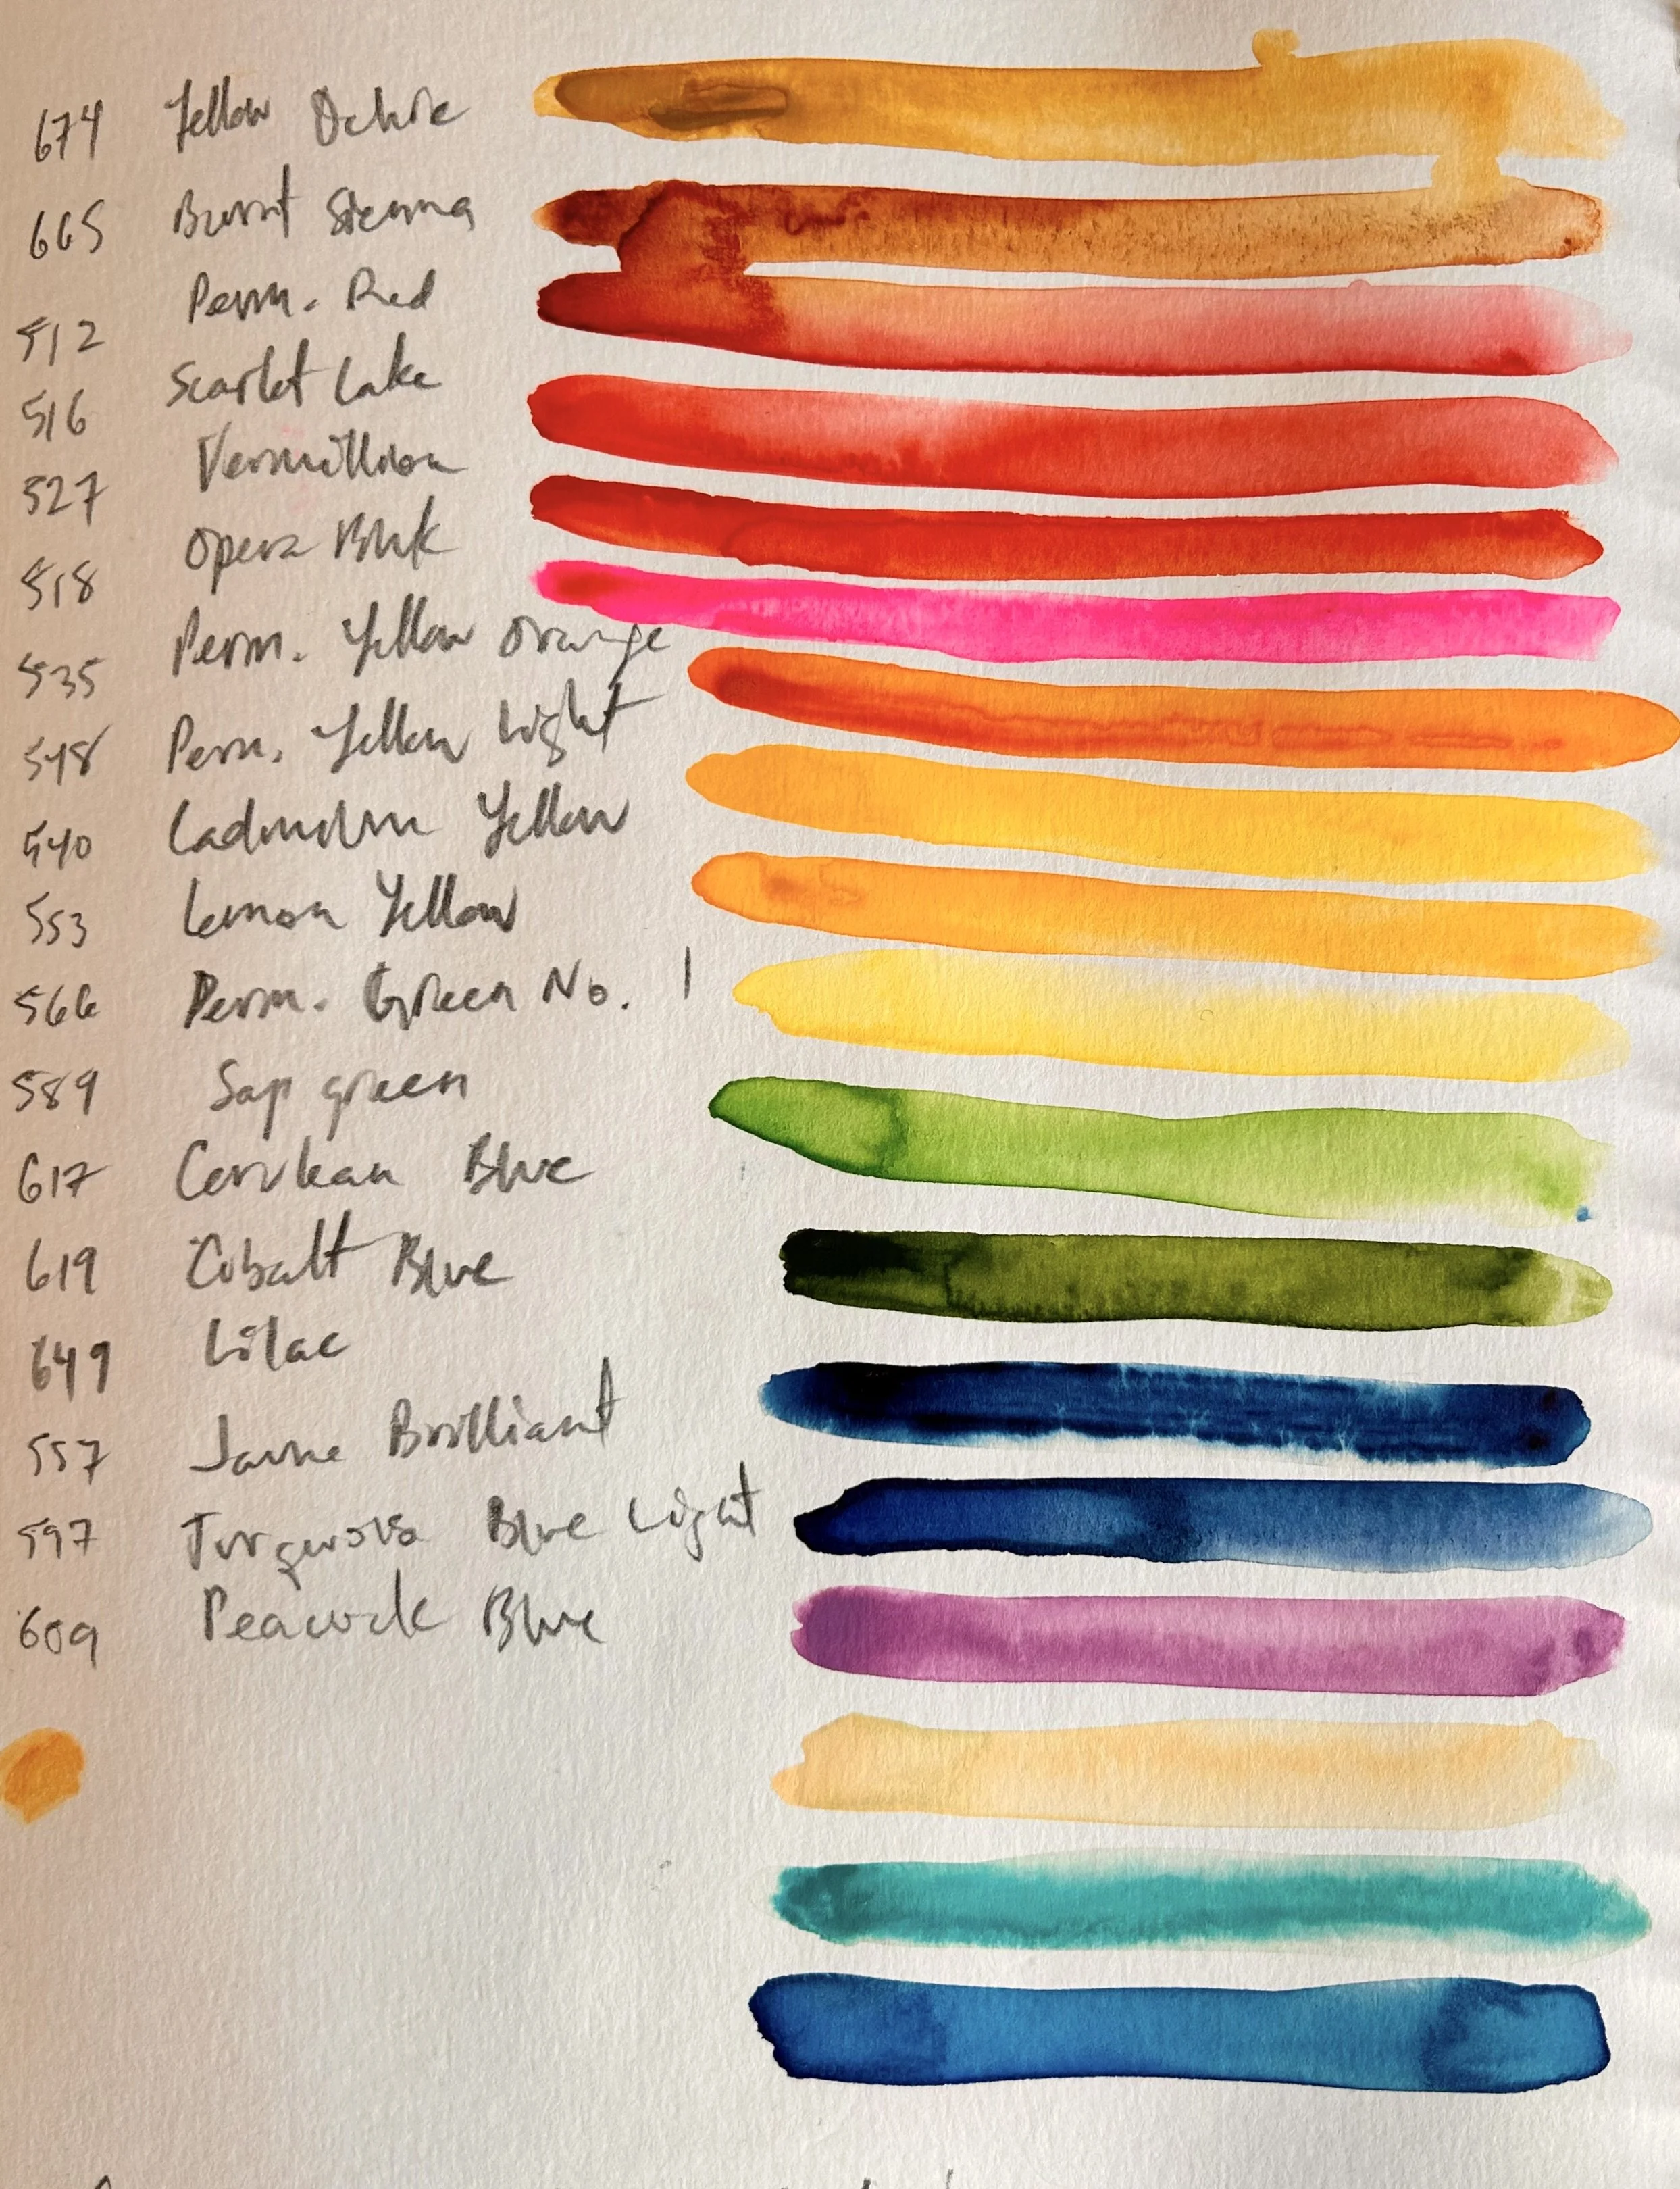 674 Yellow Ochre
665 Burnt Sienna
512 Perm. Red
516 Scarlet Lake
527 Vermillion
518 Opera
535 Perm. Yellow Orange
548 Perm. Yellow Light
540 Cadmium Yellow
553 Lemon Yellow
566 Perm. Green No. 1
589 Sap green
617 Cerulean Blue
619 Cobalt Blue
649 Lilac
557 Jaune Brilliant
597 Turquois Blue Light
609 Peacock Blue